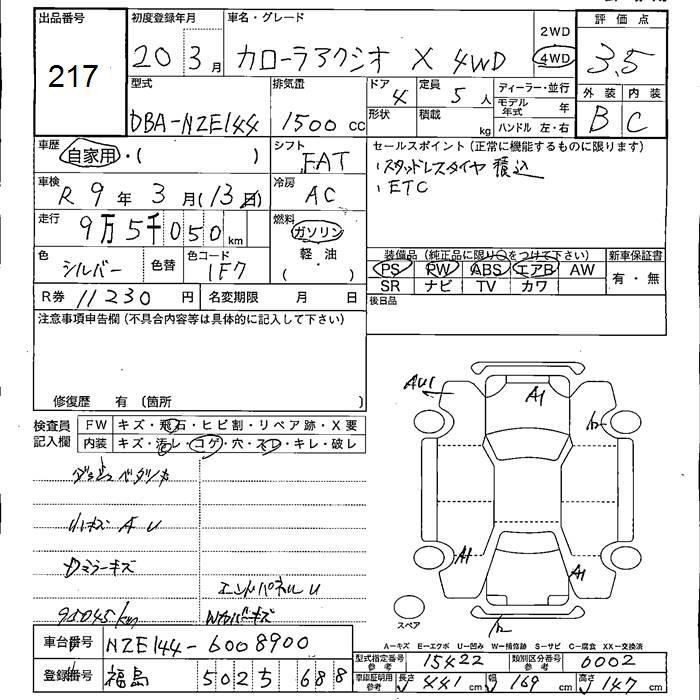 出品番号 初度登録年月 車名・グレード 2WD 評価点
217 20 3月 カローラアクシオ X 4WD 4WD 3.5
型式 排気量 ドア 4 定員 5人 ディーラー・並行 外装 内装
DBA-NZE144 1500cc 形状 積載 kg モデル年式 年 B C
ハンドル 左・右
車歴 自家用・( ) シフト FAT セールスポイント(正常に機能するものに限ります)
・スタッドレスタイヤ積込
車検 R9年3月(13日) 冷房 AC ・ETC
走行 9万5千050km 燃料 ガソリン
軽・油
( )
装備品(純正品に限り○をつけて下さい) 新車保証書
色 シルバー 色替 色コード 1F7 PS PW ABS エアB AW 有・無
SR ナビ TV カワ
R券 11230円 名変期限 月 日 後日品
注意事項申告欄(不具合内容等は具体的に記入して下さい)
修復歴 有 (箇所 )
AU1 A1
検査員記入欄 FW キズ・飛石・ヒビ割・リペア跡・X要
内装 キズ・汚レ・コゲ・穴・スレ・キレ・破レ
小キズ AU
Dミラーキズ A1 A1
エンドパネルU
95045km Wカバーキズ スペア
A−キズ E−エクボ U−凹み W−補修跡 S−サビ C−腐食 XX−交換済
車台番号 NZE144-6008900 型式指定番号 参考 15422 類別区分番号 参考 6002
登録番号 福島 502 ち 688 車庫証明用 参考 長さ 441cm 幅 169cm 高さ 147cm